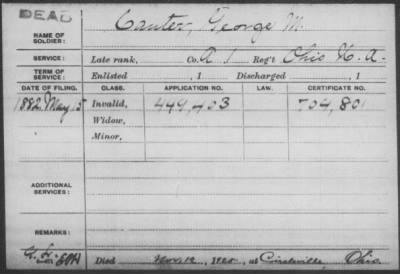 DEAD
NAME OF SOLDIER: Canter, George M.
SERVICE: Late rank, Co. A 1 Reg't Ohio H. A.
TERM OF SERVICE: Enlisted , 1 Discharged , 1
DATE OF FILING. CLASS. APPLICATION NO. LAW. CERTIFICATE NO.
1882 May 15 Invalid, 449,403 704,801
Widow,
Minor,
ADDITIONAL SERVICES:
REMARKS:
Died Nov. 12, 1920, at Circleville, Ohio